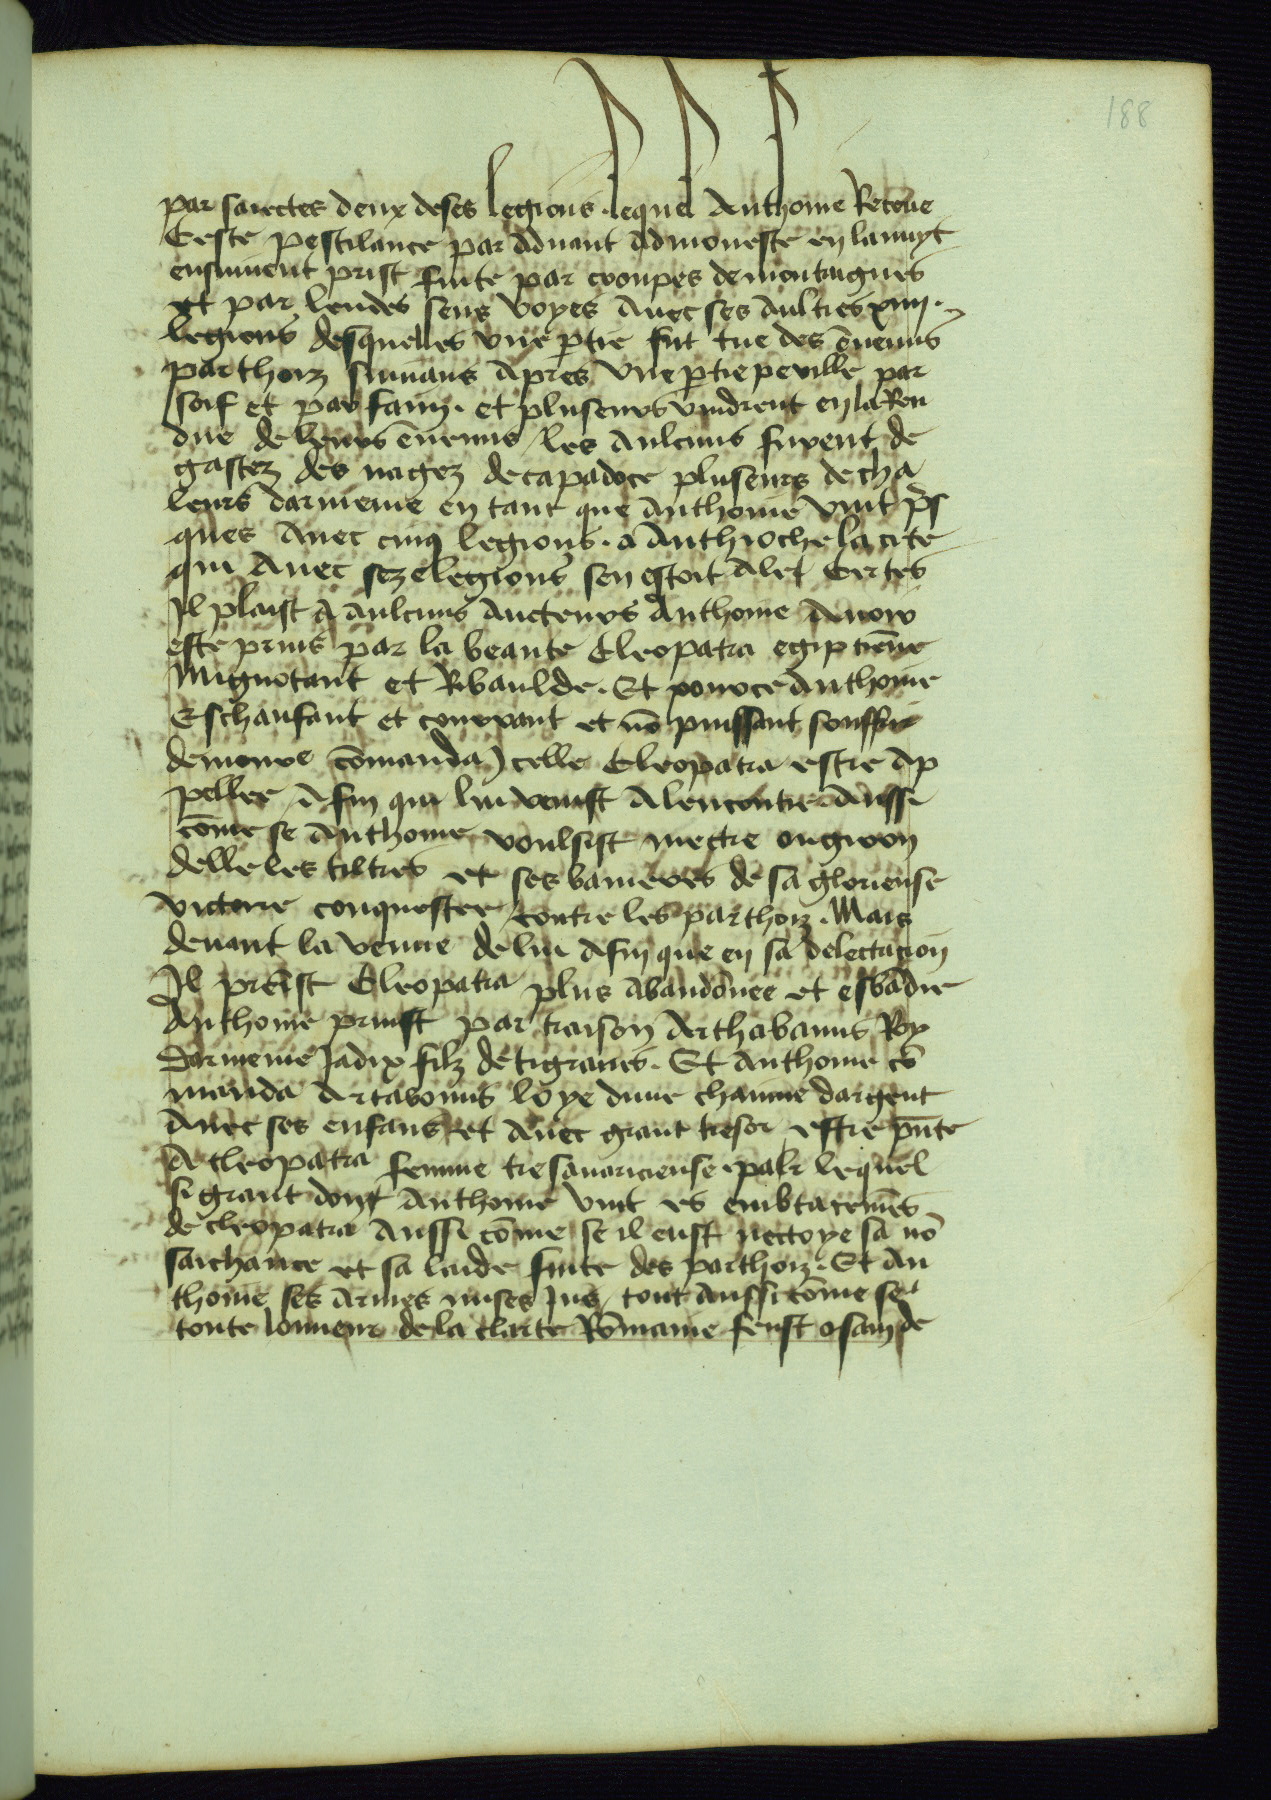 188
par saiectes deux de ses legions. lequel Anthoine Receue
Ceste pestilance par advant admoneste en la nuyt
ensuivent prist fuite par croupes de montaignes
et par landes sens voyes avec ses aultres xiiii.
legions desquelles une ptie fut tue des ēnemis
parthoiz suivans apres une ptie perille par
soif et par faim. et pluseurs vindrent en la Ren
due de leurs ēnemis les aulcuns furent de
gastez des nagez de capadoce pluseurs de cha
leurs darmenie en tant que Anthoine vint pˢ
ques avec cinq legions. a Anthioche la cite
qui avec seze legions sen estoit alet Certes
Il plaist a aulcuns aucteurs Anthoine avoir
este prins par la beaute Cleopatra egiptiēne
Mignotant et Ribaulde. Et pource Anthoine
Eschaufant et couvrant et nō puissant souffrir
demoure cōmanda Icelle Cleopatra estre ap
pellee afin qui lui venist alencontre Aussi
cōme se Anthoine voulsist mectre ou giron
delle les tiltres et ses banieres de sa glorieuse
victoire conquestee contre les parthoiz. Mais
devant la venue de lui afin que en sa delectacion
Il prēist Cleopatra plus abandōnee et esbādie
Anthoine prinst par traison Arthabanus Roy
Darmenie Jadix filz de tigranes. Et Anthoine cō
manda Artabonus loye dune chainne dargent
avec ses enfans et avec grant tresor estre pn̄te
A cleopatra femme tres avaricieuse. par lequel
si grant dont Anthoine vint es embracemēs
de cleopatra Aussi cōme se il eust nectoye sa nō
saichance et sa laide fuite des parthoiz. Et An
thoine ses armes mises Jus tout aussi cōme se
toute lonneur de la clarte Rōmaine feust